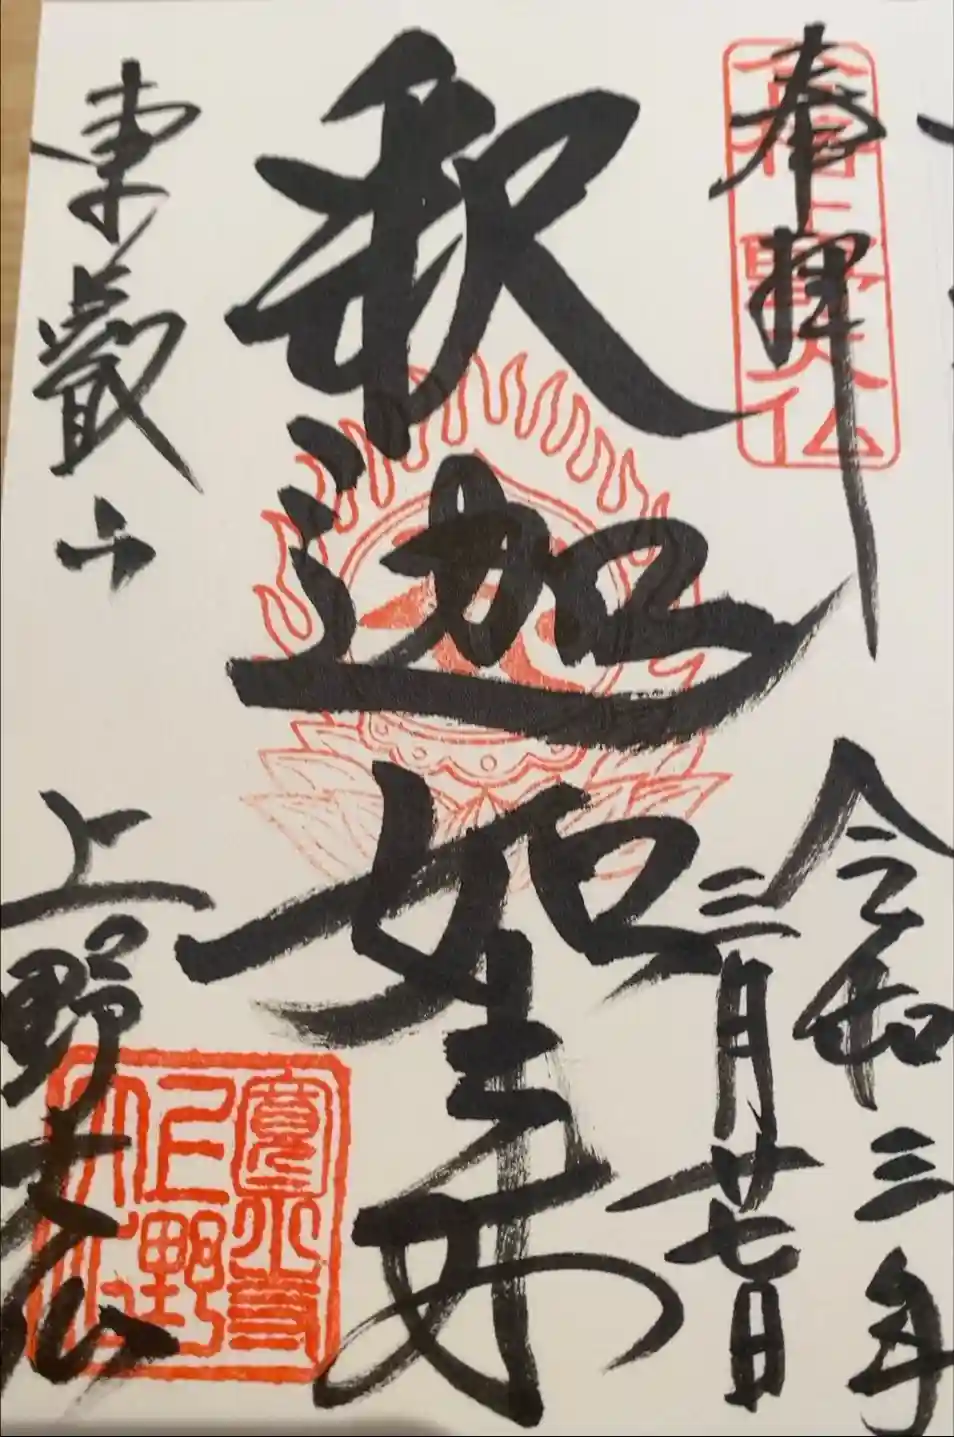 奉拝
令和三年
三月廿七日
釈迦如来
東叡山
上野大仏
上野大仏
寛永寺